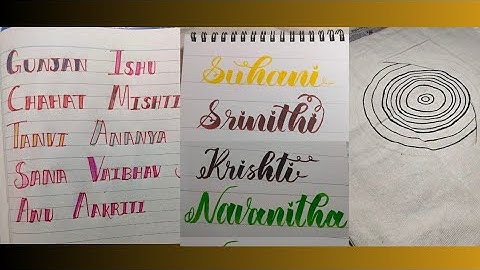 GUNJAN ISHU
CHAHAT MISHTI
TANVI ANANYA
SANA VAIBHAV
ANU AAKRITI
Suhani
Srinithi
Krishti
Navanitha